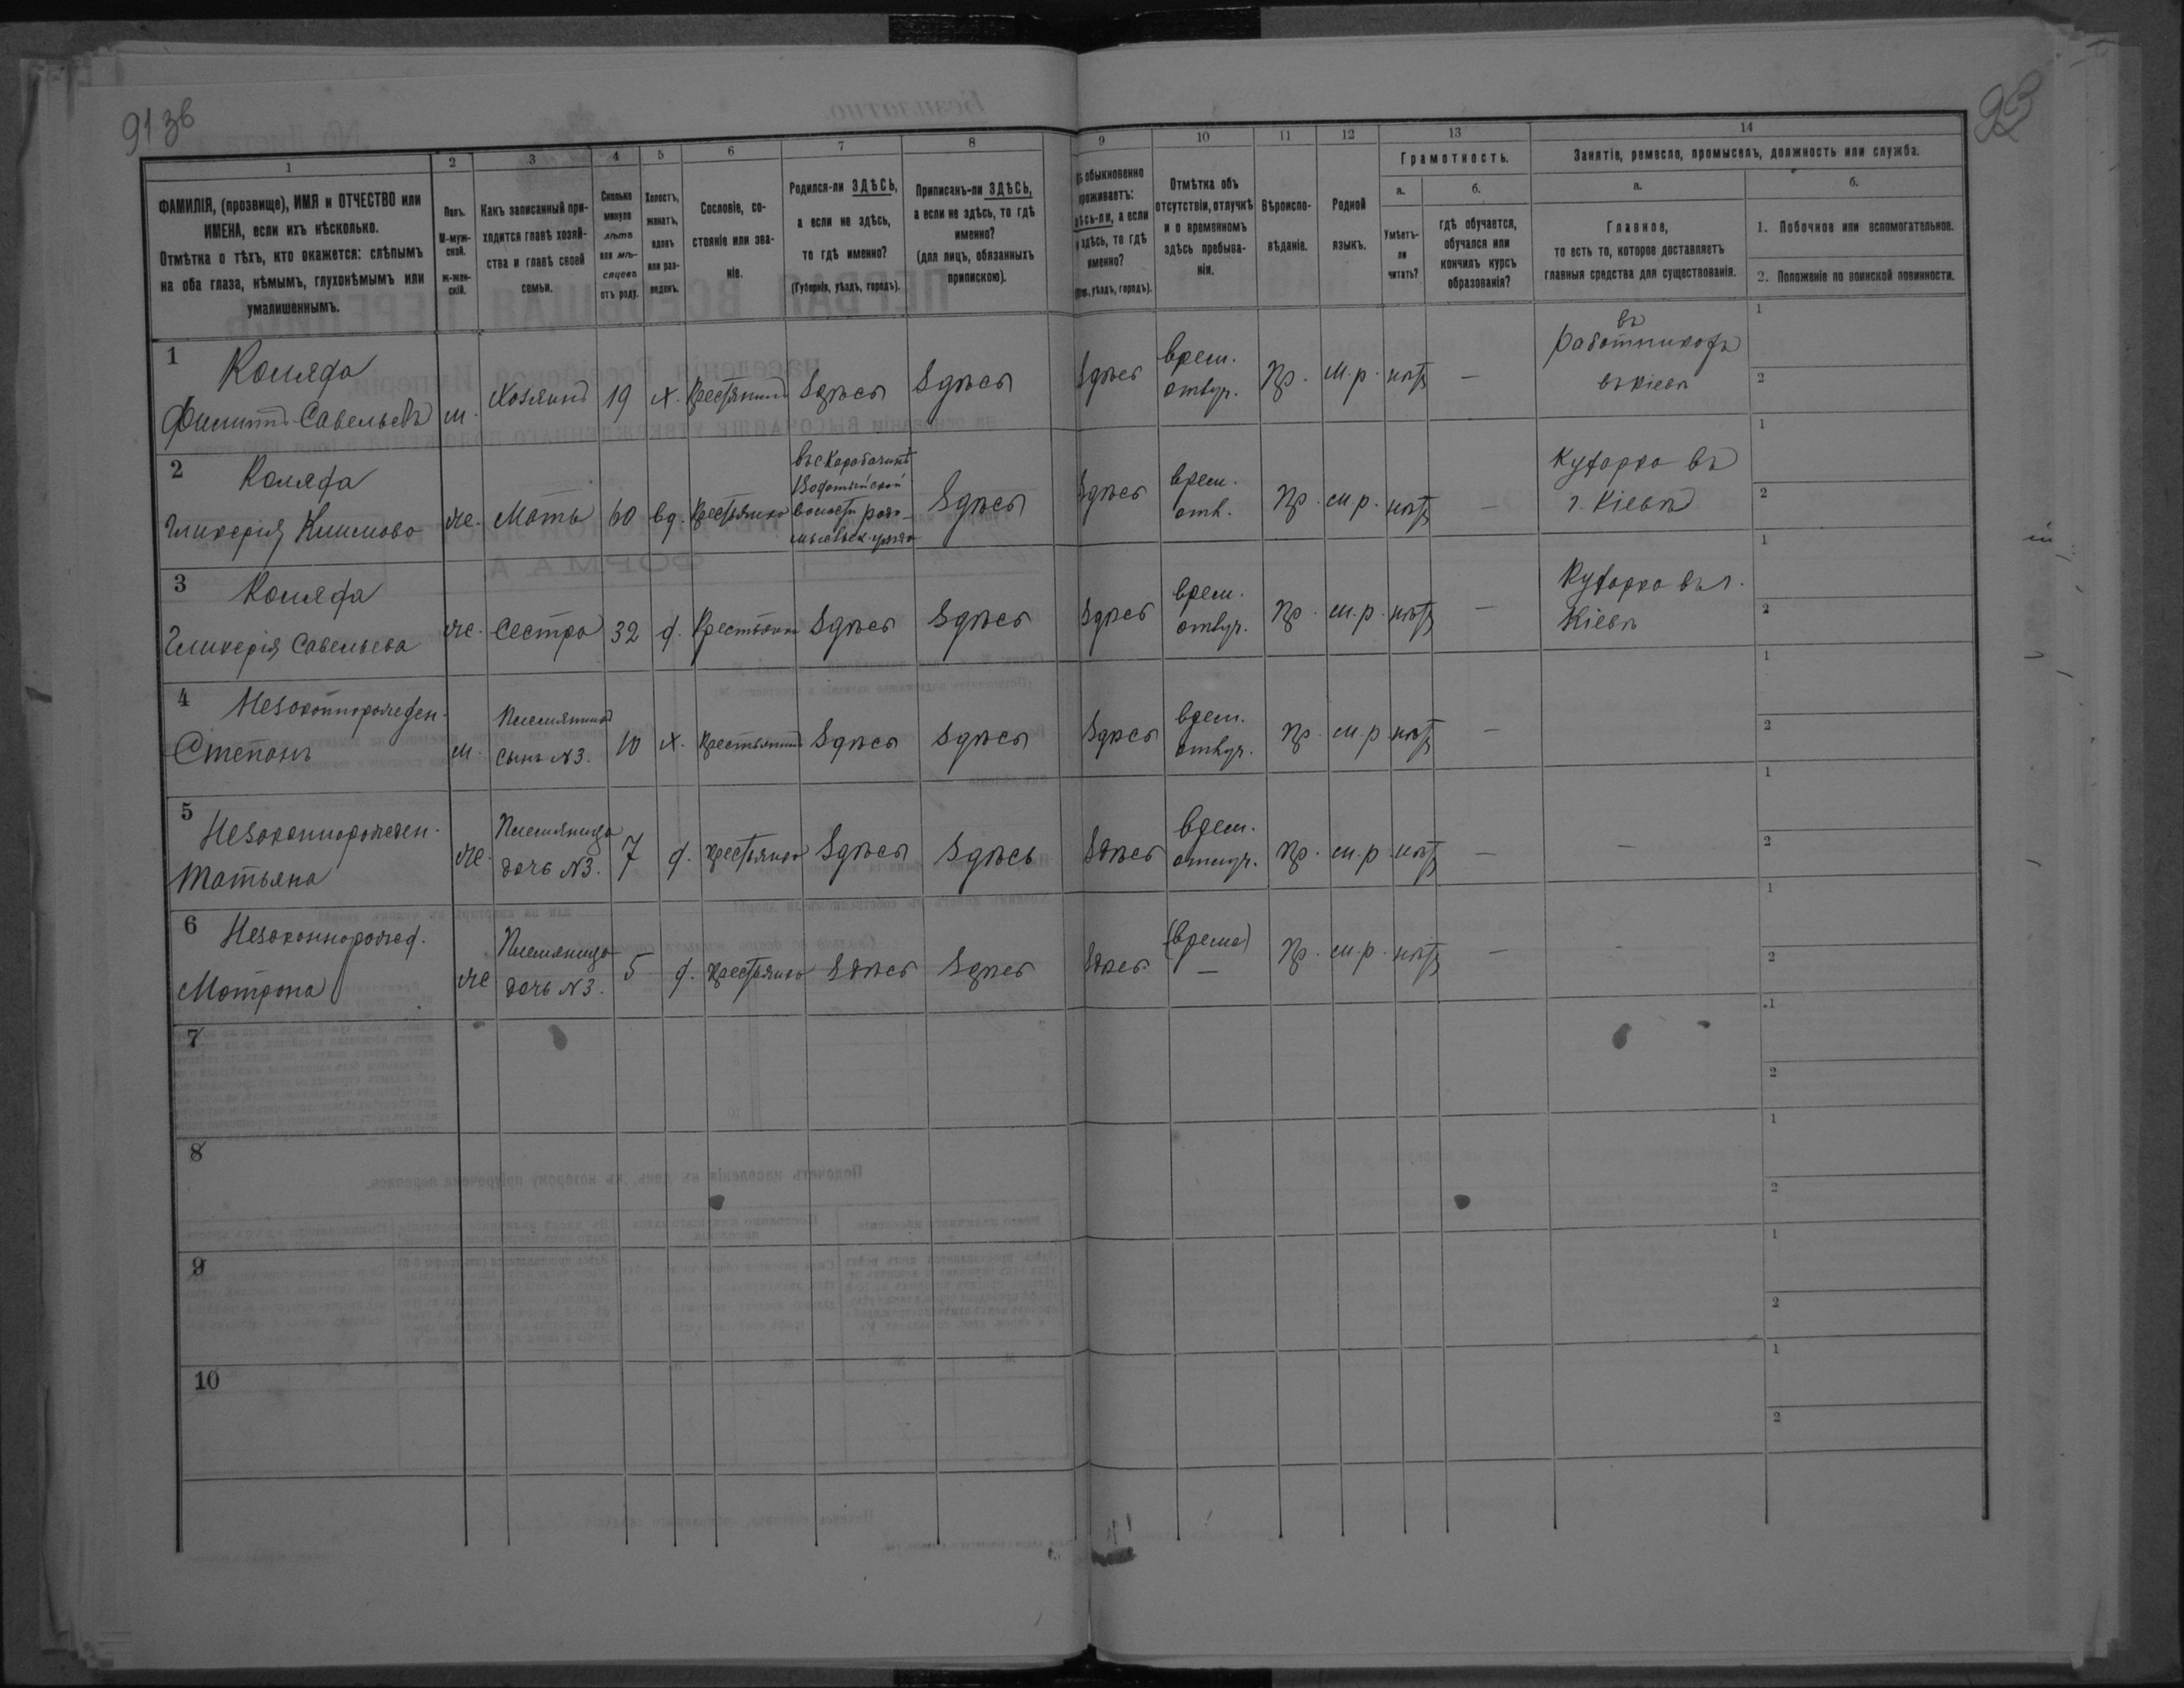 91 зв
93
1 2 3 4 5 6 7 8 9 10 11 12 13 14
ФАМИЛІЯ, (прозвище), ИМЯ и ОТЧЕСТВО или
ИМЕНА, если ихъ нѣсколько.
Отмѣтка о тѣхъ, кто окажется: слѣпымъ
на оба глаза, нѣмымъ, глухонѣмымъ или
умалишеннымъ.
Полъ.
М-муж-
ской.
ж-жен-
скій.
Какъ записанный при-
ходится главѣ хозяй-
ства и главѣ своей
семьи.
Сколько
минуло
лѣтъ
или мѣ-
сяцевъ
отъ роду.
Холостъ,
женатъ,
вдовъ
или раз-
веденъ.
Сословіе, со-
стояніе или зва-
ніе.
Родился-ли ЗДѢСЬ,
а если не здѣсь,
то гдѣ именно?
(Губернія, уѣздъ, городъ).
Приписанъ-ли ЗДѢСЬ,
а если не здѣсь, то гдѣ
именно?
(для лицъ, обязанныхъ
припискою).
обыкновенно
проживаетъ:
здѣсь-ли, а если
здѣсь, то гдѣ
именно?
уѣздъ, городъ).
Отмѣтка объ
отсутствіи, отлучкѣ
и о временномъ
здѣсь пребыва-
ніи.
Вѣроиспо-
вѣданіе.
Родной
языкъ.
Грамотность.
а.
Умѣетъ-
ли
читать?
б.
гдѣ обучается,
обучался или
кончилъ курсъ
образованія?
Занятіе, ремесло, промыселъ, должность или служба.
а.
Главное,
то есть то, которое доставляетъ
главныя средства для существованія.
б.
1. Побочное или вспомогательное.
2. Положеніе по воинской повинности.
1
Коляда
Филиппъ Савельевъ
м.
Хозяинъ
19
х.
Крестянинъ
Здѣсь
Здѣсь
Здѣсь
врем.
отлуч.
Пр.
м.р.
нѣтъ
—
въ
работникахъ
въ Кіевѣ
1
2
2
Коляда
Гликерія Климова
же.
Мать
60
вд.
Крестьянка
въ с Карабачинѣ
волости радо-
мысльск. уѣзда
Здѣсь
Здѣсь
врем.
отл.
Пр.
м.р.
нѣтъ
—
Кухарка въ
г. Кіевѣ
1
2
3
Коляда
Гликерія Савельева
же.
Сестра
32
д.
Крестьянка
Здѣсь
Здѣсь
Здѣсь
врем.
отлуч.
Пр.
м.р.
нѣтъ
—
Кухарка въ г.
Кіевѣ
1
2
4
Незаконнорожден.
Степанъ
м.
Племянникъ
сынъ N3.
10
х.
Крестьянинъ
Здѣсь
Здѣсь
Здѣсь
врем.
отлуч.
Пр.
м.р
нѣтъ
—
1
2
5
Незаконнорожден.
Татьяна
же.
Племяница
дочь N3.
7
д.
крестьянка
Здѣсь
Здѣсь
Здѣсь
врем.
отлуч.
Пр.
м.р
нѣтъ
—
—
1
2
6
Незаконнорожд.
Матрона
же
Племяница
дочь N3.
5
д.
крестьянка
Здѣсь
Здѣсь
Здѣсь
—
Пр.
м.р
нѣтъ
—
-
1
2
7
1
2
8
1
2
9
1
2
10
1
2